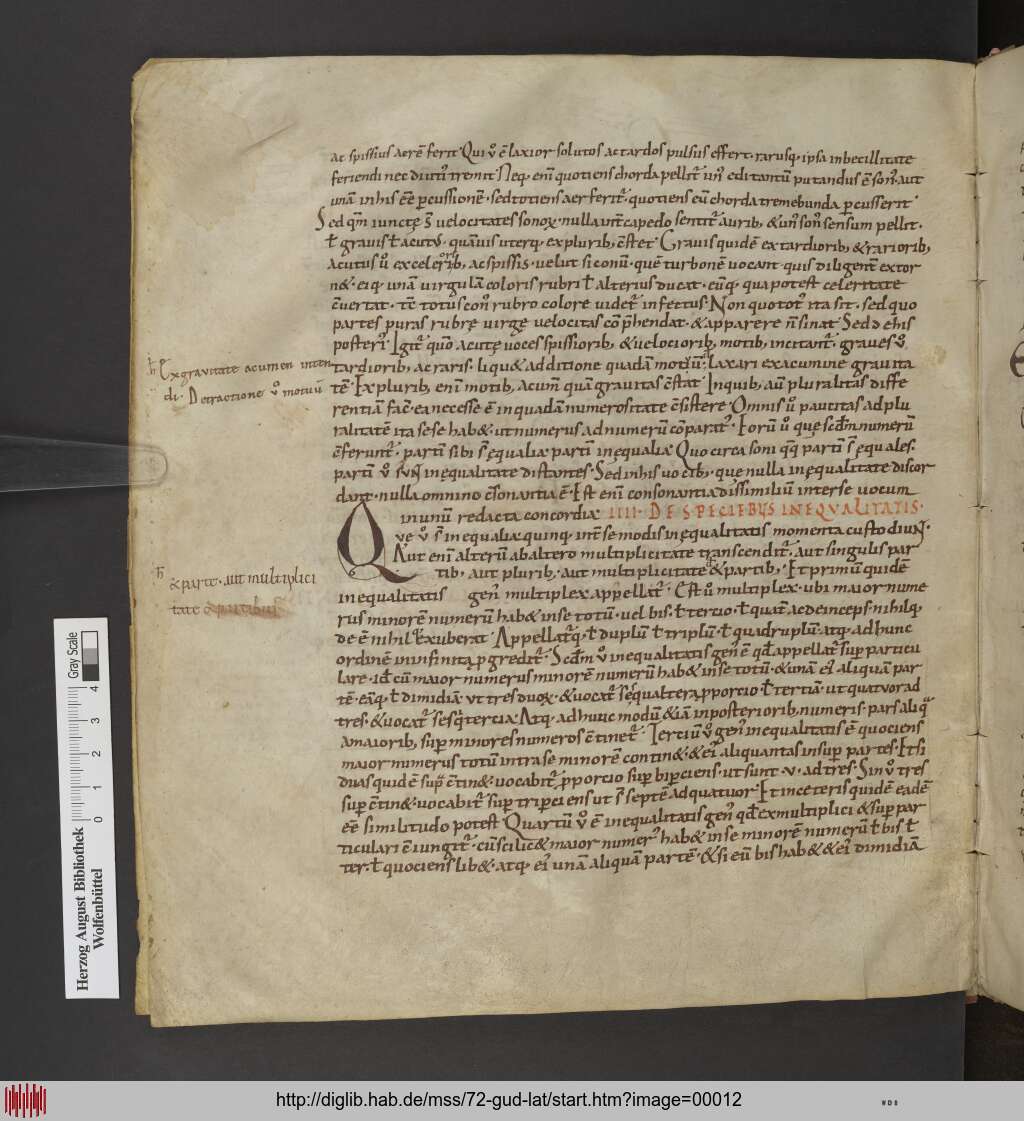 ac spissius aerē ferit Qui ů ē laxior solutos ac tardos pulsus effert. rarusq; ipsa inbecillitate
feriendi nec diutı͛ tremit Neq; enī quotiens chorda pellit᷑ un᷒ edi tantū putandus ē son᷒. aut
unā in his eē ꝑcussionē. sed totiens aer ferit᷑. quotiens eū chorda tremebunda ꝑcusserit
Sed qm̄ iunctę s̄ velocitates sonoꝝ. nulla int̄capedo sentit᷑ aurib; & un᷒ son᷒ sensum pellit.
ł gravis ł acut᷒. quāuis uterq; ex plurib; c̄stet Gravis quidē ex tardiorib; & rariorib;
Acutus ů ex celerιorib; ac spissis. velut si conū. quē turbonē uocant quis diligent̄ extor
n& eiq; unā virgulā coloris rubri ł alterius ducat. eūq; qua potest celeritate
c̄vertat. tc̄ totus con᷒ rubro colore videt᷑ infectus. Non quo tot᷒ ita sit. sed quo
partes puras rubrę virgę velocitas cōp̄hendat. & apparere n̄ sinat Sed de his
posteri᷒ Igit᷑ qm̄ acutę uoces spissiorib; & velociorib; motib; incitant᷑. graves ů
tardiorib; ac raris. liqu& additione quadā motuū. laxari ex acumine gravita
tē Ex plurib; enī motib; acum̄ quā gravitas c̄stat Inquib; aū pluralitas diffe
rentiā fac̄. ea necesse ē in quadā numerositate c̄sistere Omnis ů paucitas ad plu
ralitatē ita sese hab& ut numerus ad numerū cōparat᷒ Eorū ů quę scd̄m numerū
c̄ferunt᷑. partī sibi s̄ equalia partī inęqualia Quo circa soni qq; partī s̄ ęquales.
partī ů sun̄ inęqualitate distantes. Sed in his vocib; que nulla inęqualitate discor
dant. nulla omnino c̄sonantia ē. Est enī consonantia dissimiliū inter se uocum
in unū redacta concordia IIII. DE SPECIEBUS INEQUALITATIS.
Que ů s̄ inequalia quinq; int̄ se modis inęqualitatis momenta custodiunt.
Aut enī alterū ab altero multiplicitate transcendit᷑. aut singulis par
tib; aut plurib; aut multiplicitate & partib; Et primū quidē
inequalitatis gen᷒ multiplex appellat᷑ Est ů multiplex. ubi maior nume
rus minorē numerū hab& in se totū. vel bis. ł tercio. ł quat᷑ ac deinceps. nihilq;
de ē nihil exuberat Appellat᷑q; ł duplū ł triplū ł quadruplū. atq; ad hunc
ordinē in infinita p̱gredit᷑. Scd̄m ů inequalitatis gen᷒ ē qđ appellat᷑ suꝑ particu
lare. id ē cū maior numerus minorē numerū hab& in se totū. & unā ei᷒ aliquam par
tē. eāq; ł dimidiā. ut tres duoꝝ. & uocat᷑ sesqualtera ꝓporcio ł tertiā. ut quatuor ad
tres. & uocat᷑ sesq̇tercia. Atq; ad hunc modū &iā in posteriorib; numeris. pars aliq̇
a maiorib; suꝑ minores numeros c̄tinet᷑. Tertiū ů gen᷒ inequalitatis ē quociens
maior numerus totū intra se minorē contin& & ei᷒ aliquantas insuꝑ partes. Et si
duas quidē suꝑ c̄tin& uocabit᷑ ꝓporcio suꝑ biꝑciens. ut sunt .v. ad tres. Sin ů tres
suꝑ c̄tin& uocabit᷑ suꝑ triꝑciens ut s̄ septē ad quatuor. Et in ceteris quidē eadē
eē similitudo potest Quartū ů ē inequalitatis gen᷒ qđ ex multiplici & suꝑ par
ticulari c̄iungit᷑. cū scilic& maior numer᷒ hab& in se minorē numerū ł bis ł
ter. ł quociens lib& atq; ei᷒ unā aliquam partē. & si eū bis hab& & ei᷒ dimidiā
Ex gravitate acumen inten
di. Detractione ů motuū
& parte. aut multiplici
tate & partibus
Herzog August Bibliothek
Wolfenbüttel
0 1 2 3 4
Gray Scale
http://diglib.hab.de/mss/72-gud-lat/start.htm?image=00012